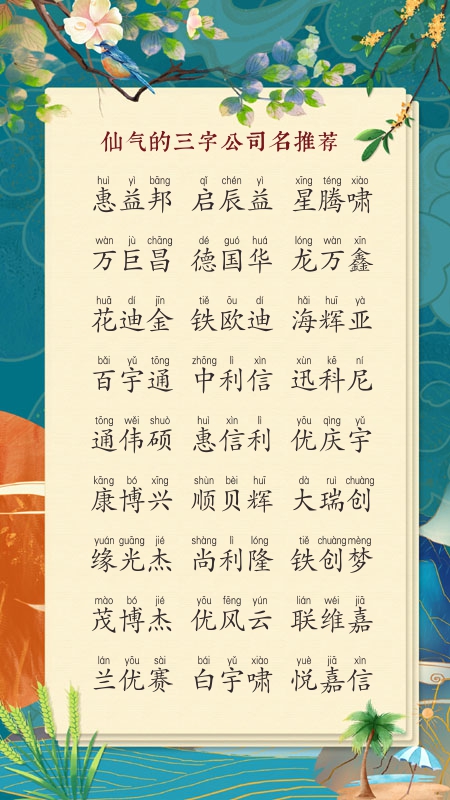 仙气的三字公司名推荐
huì yì bāng qǐ chén yì xīng téng xiào
惠益邦 启辰益 星腾啸
wàn jù chāng dé guó huá lóng wàn xīn
万巨昌 德国华 龙万鑫
huā dí jīn tiě ōu dí hǎi huī yà
花迪金 铁欧迪 海辉亚
bǎi yǔ tōng zhōng lì xìn xùn kē ní
百宇通 中利信 迅科尼
tōng wěi shuò huì xìn lì yōu qìng yǔ
通伟硕 惠信利 优庆宇
kāng bó xīng shùn bèi huī dà ruì chuàng
康博兴 顺贝辉 大瑞创
yuán guāng jié shàng lì lóng tiě chuàng mèng
缘光杰 尚利隆 铁创梦
mào bó jié yōu fēng yún lián wéi jiā
茂博杰 优风云 联维嘉
lán yōu sài bái yǔ xiào yuè jiā xìn
兰优赛 白宇啸 悦嘉信